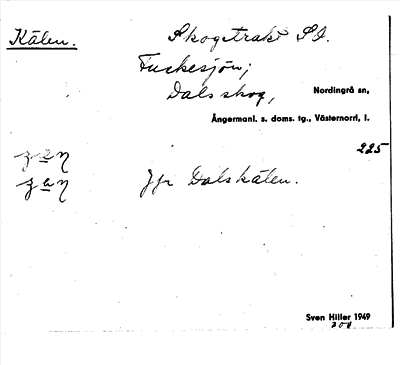 Kälen. Skogstrakt SO.
Fuskesjön;
Dals skog, Nordingrå sn,
Ångermanl. s. doms. tg., Västernorrl. l.
225
Jfr Dalskälen.
Sven Hiller 1949